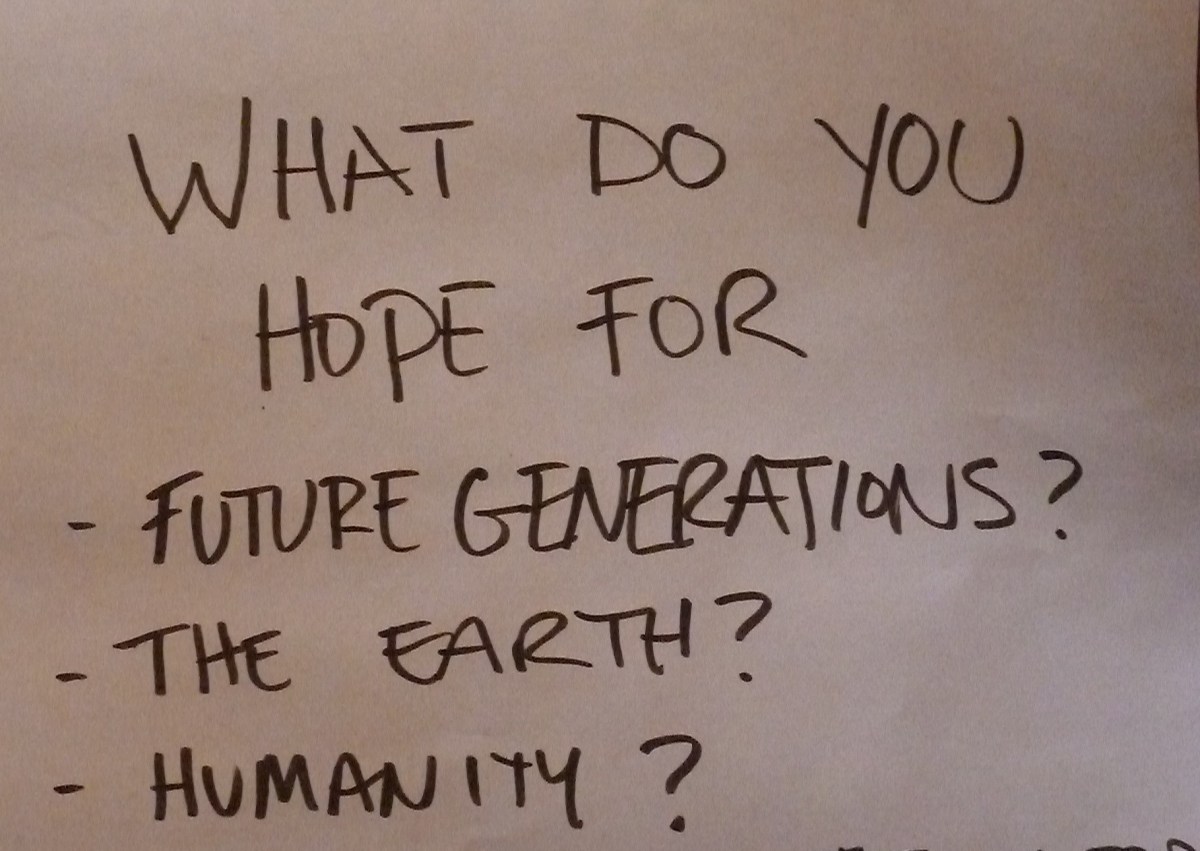 WHAT DO YOU
HOPE FOR
- FUTURE GENERATIONS?
- THE EARTH?
- HUMANITY?